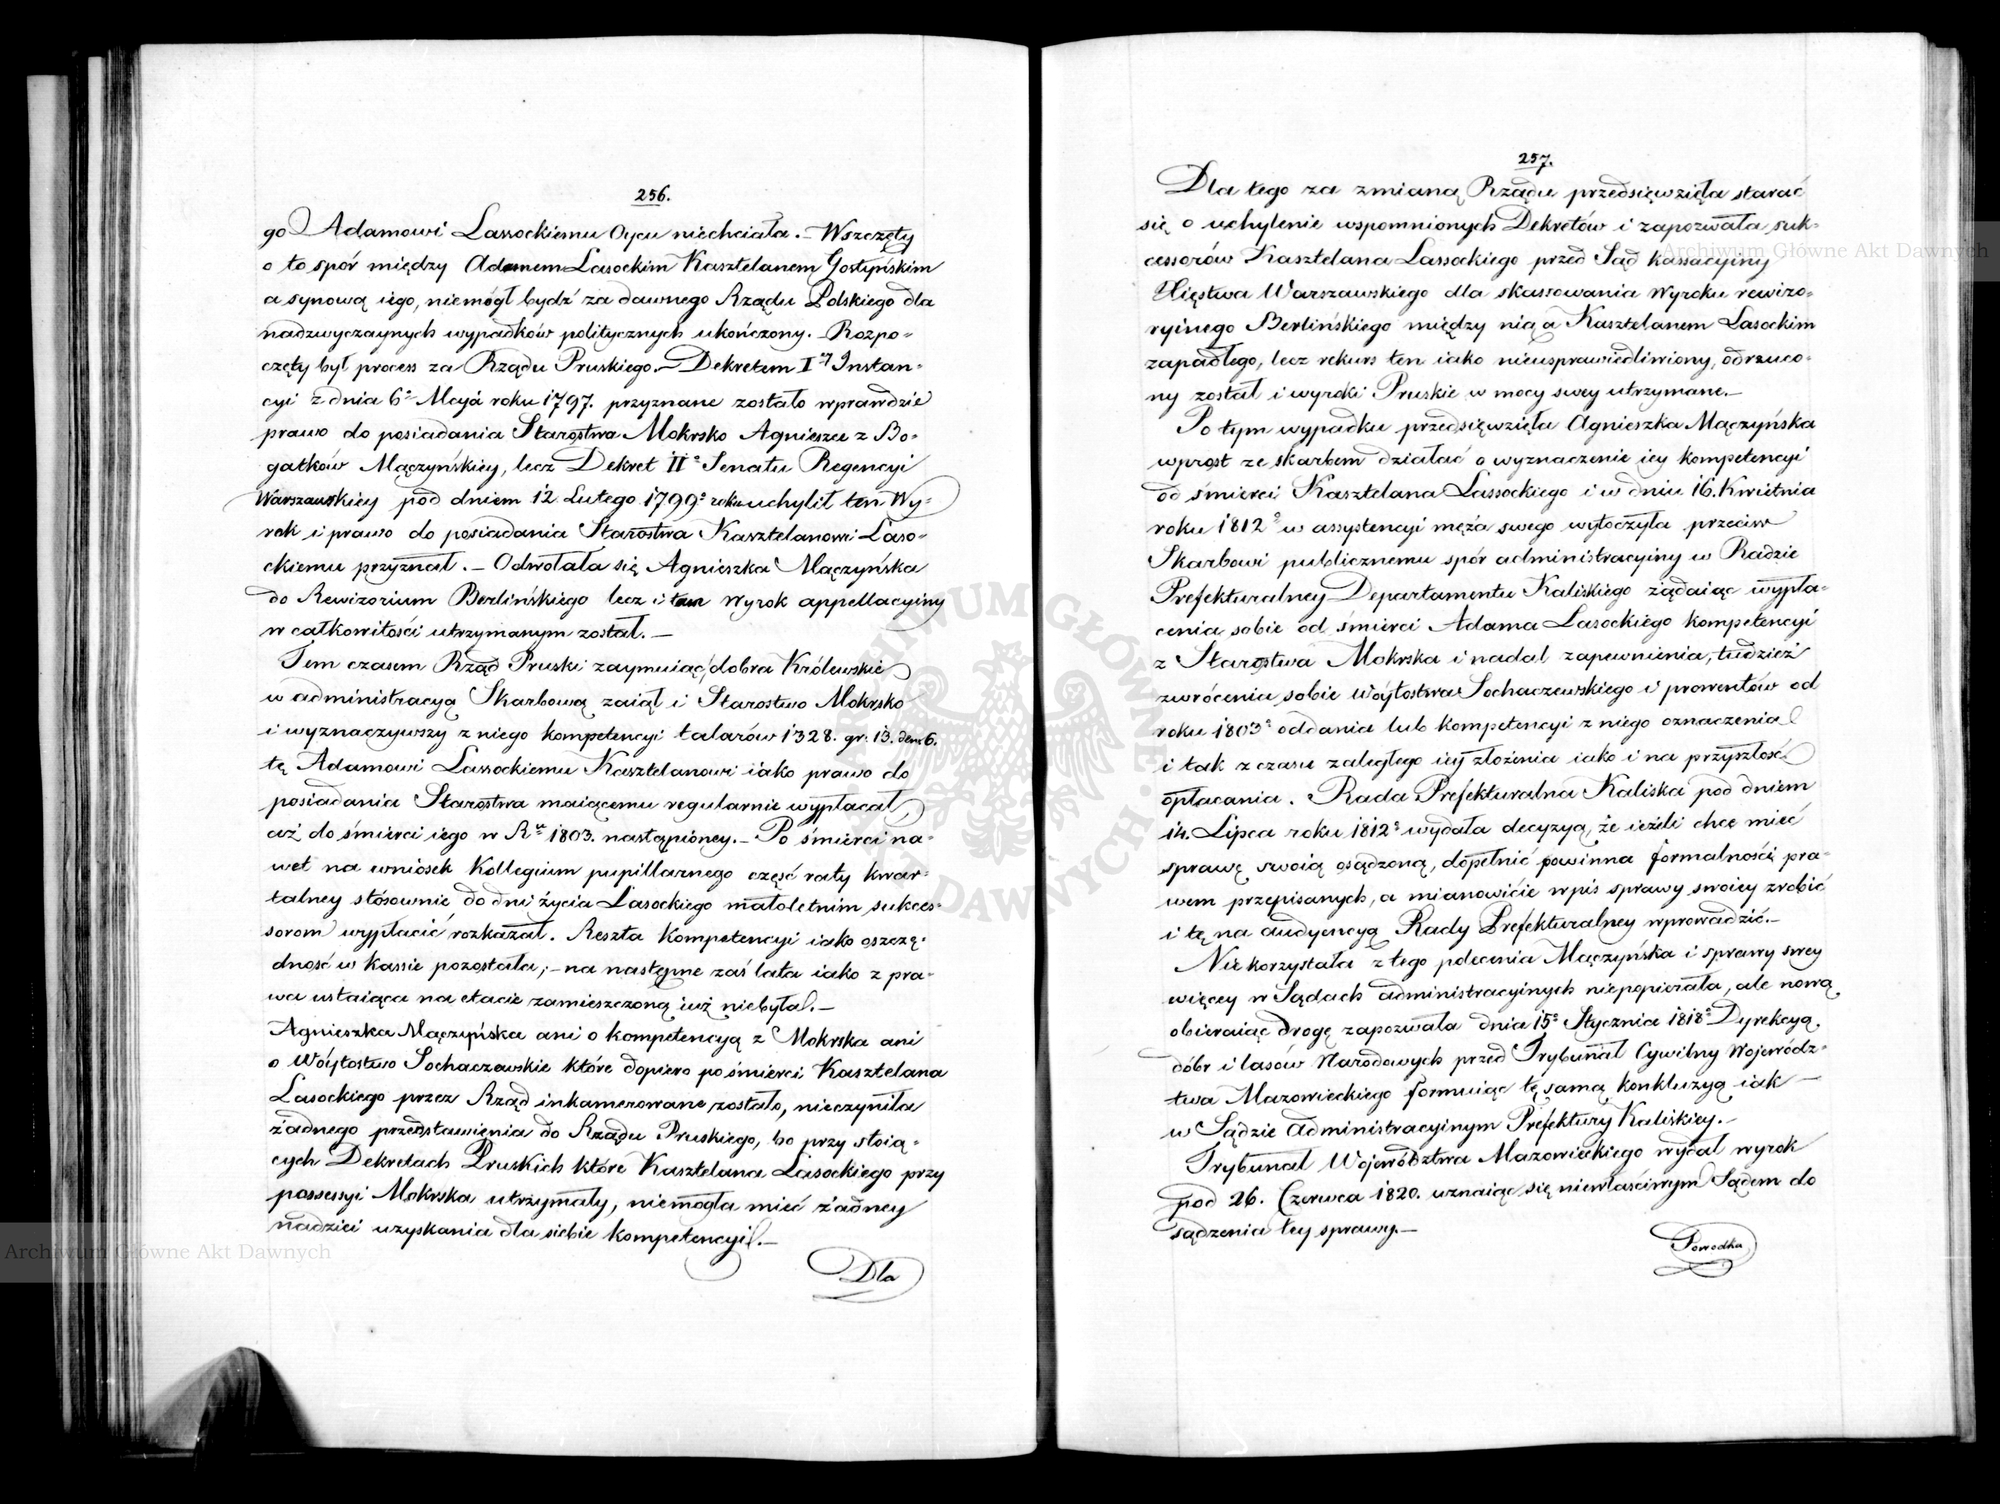 256.
go Adamowi Lassockiemu Oycu niechciała. – Wszczęty
o to spór między Adamem Lasockim Kasztelanem Gostyńskim
a synową iego, niemógł bydź za dawnego Rządu Polskiego dla
nadzwyczaynych wypadków politycznych ukończony. – Rozpo-
częty był process za Rządu Pruskiego. – Dekretem I<sup>ey</sup> Instan-
cyi z dnia 6º Maja roku 1797. przyznane zostało wprawdzie
prawo do posiadania Starostwa Mokrsko Agnieszce z Bo-
gatków Mączyńskiey, lecz Dekret IIº Senatu Regencyi
Warszawskiey pod dniem 12 Lutego 1799º roku uchylił ten Wy-
rok i prawo do posiadania Starostwa Kasztelanowi Laso-
ckiemu przyznał. – Odwołała się Agnieszka Mączyńska
do Rewizorium Berlińskiego lecz i ten wyrok appellacyiny
w całkowitości utrzymanym został. –
Tem czasem Rząd Pruski zaymuiąc dobra Królewskie
w administracyą Skarbową zaiął i Starostwo Mokrsko
i wyznaczywszy z niego kompetencyi talarów 1328. gr: 13. den: 6.
tę Adamowi Lassockiemu Kasztelanowi iako prawo do
posiadania Starostwa maiącemu regularnie wypłacał,
aż do śmierci iego w R<sup>u</sup> 1803. nastąpioney. – Po śmierci na-
wet na wniosek Kollegium pupillarnego część raty kwar-
talney stósownie do dni życia Lasockiego małoletnim sukces-
sorom wypłacić rozkazał. Reszta Kompetencyi iako oszczę-
dność w Kassie pozostała; – na następne zaś lata iako z pra-
wa ustaiąca na etacie zamieszczoną iuż niebyła. –
Agnieszka Mączyńska ani o kompetencyą z Mokrska ani
o Wóytostwo Sochaczewskie które dopiero po śmierci Kasztelana
Lasockiego przez Rząd inkamerowane zostało, nieczyniła
żadnego przedstawienia do Rządu Pruskiego, bo przy stoią-
cych Dekretach Pruskich które Kasztelana Lasockiego przy
possessyi Mokrska utrzymały, niemogła mieć żadney
nadziei uzyskania dla siebie kompetencyi. –
Dla
257.
Dla tego za zmianą Rządu przedsięwzięła starać
się o uchylenie wspomnionych Dekretów i zapozwała suk-
cessorów Kasztelana Lassockiego przed Sąd kassacyiny
Xięstwa Warszawskiego dla skassowania Wyroku rewizo-
ryinego Berlińskiego między nią a Kasztelanem Lasockim
zapadłego, lecz rekurs ten iako nieusprawiedliwiony, odrzuco-
ny został i wyroki Pruskie w mocy swey utrzymane. –
Po tym wypadku przedsięwzięła Agnieszka Mączyńska
wprost ze skarbem działać o wyznaczenie iey kompetencyi
od śmierci Kasztelana Lassockiego i w dniu 16. Kwietnia
roku 1812º w assystencyi męża swego wytoczyła przeciw
Skarbowi publicznemu spór administracyiny w Radzie
Prefekturalney Departamentu Kaliskiego żądaiąc wypła-
cenia sobie od śmierci Adama Lasockiego kompetencyi
z Starostwa Mokrska i nadal zapewnienia, tudzież
zwrócenia sobie Wóytostwa Sochaczewskiego i prowentów od
roku 1803º oddania lub kompetencyi z niego oznaczenia
i tak z czasu zaległego iey złożenia iako i na przyszłość
opłacania. Rada Prefekturalna Kaliska pod dniem
14. Lipca roku 1812º wydała decyzyą, że ieżeli chce mieć
sprawę swoią osądzoną, dopełnić powinna formalności pra-
wem przepisanych, a mianowicie wpis sprawy swoiey zrobić
i tę na audyencyą Rady Prefekturalney wprowadzić. –
Nie korzystała z tego polecenia Mączyńska i sprawy swey
więcey w Sądach administracyinych niepopierała, ale nową
obieraiąc drogę zapozwała dnia 15º Stycznia 1818º Dyrekcyą
dóbr i lasów Narodowych przed Trybunał Cywilny Wojewódz-
twa Mazowieckiego formuiąc tę samą konkluzyą iak –
w Sądzie Administracyinym Prefektury Kaliskiey. –
Trybunał Województwa Mazowieckiego wydał wyrok
pod 26. Czerwca 1820. uznaiąc się niewłaściwym Sądem do
sądzenia tey sprawy. –
Powodka
Archiwum Główne Akt Dawnych
Archiwum Główne Akt Dawnych
ARCHIWUM GŁÓWNE AKT DAWNYCH